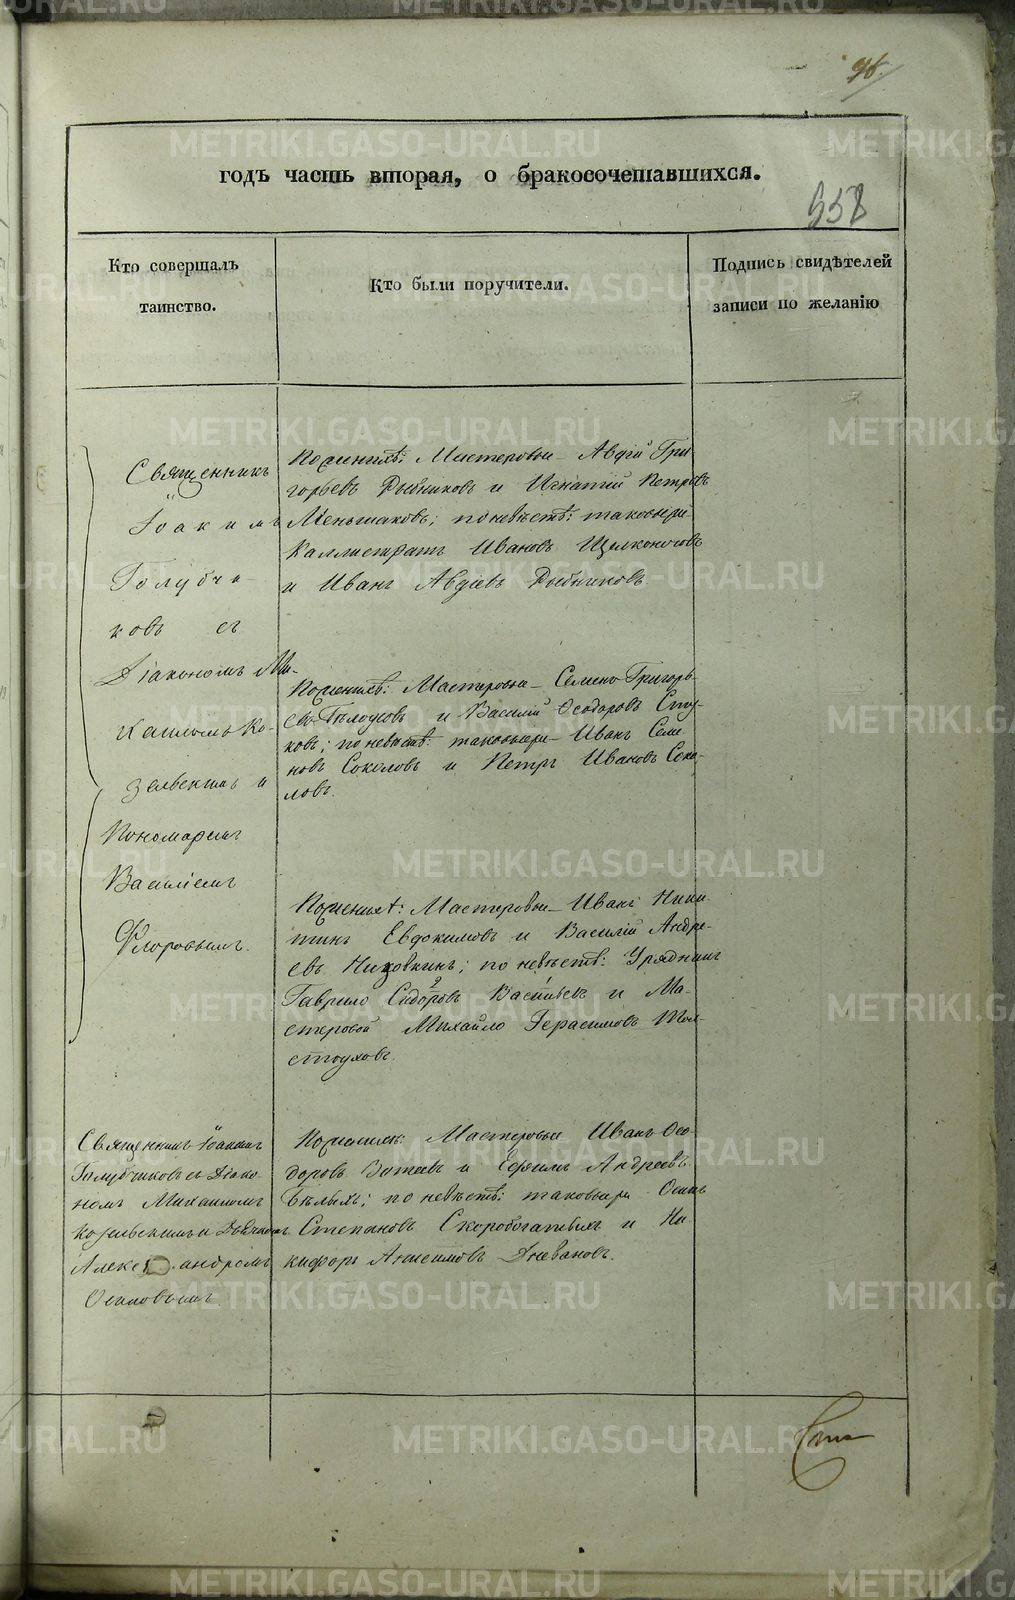 96.
годъ часть вторая, о бракосочетавшихся.
558
Кто совершалъ
таинство.
Кто были поручители.
Подпись свидѣтелей
записи по желанію
Священникъ
Іоакимъ
Голубчи-
ковъ съ
Діакономъ Ми-
хаиломъ Ко-
зельскимъ и
Пономаремъ
Василіемъ
Флоровымъ.
По женихѣ: Мастеровые Авдій Гри
горьевъ Рыбниковъ и Игнатій Петровъ
Меньшаковъ; по невѣстѣ: таковыежъ
Каллистратъ Ивановъ Щелконоговъ
и Иванъ Авдіевъ Рыбниковъ
По женихѣ: Мастеровые Семенъ Григорь-
евъ Бѣлоусовъ и Василій Ѳеодоровъ
ковъ; по невѣстѣ: таковыежъ Иванъ Семе
новъ Соколовъ и Петръ Ивановъ Соко-
ловъ.
По женихѣ: Мастеровые Иванъ Ники
тинъ Евдокимовъ и Василій Андре-
евъ Низовкинъ; по невѣстѣ: Урядникъ
Гаврило Сидоровъ Васильевъ и Ма-
стеровой Михайло Герасимовъ Тол-
стоуховъ.
Священникъ Іоакимъ
Голубчиковъ съ Діако-
номъ Михаиломъ
Козельскимъ и Дьячкомъ
Александромъ
Осиповымъ
По женихѣ: Мастеровые Иванъ Ѳео-
доровъ Зотеевъ и Ефимъ Андреевъ
Бѣлыхъ; по невѣстѣ: таковыежъ Осипъ
Степановъ Скоробогатыхъ и Ни-
кифоръ Анисимовъ
METRIKI.GASO-URAL.RU